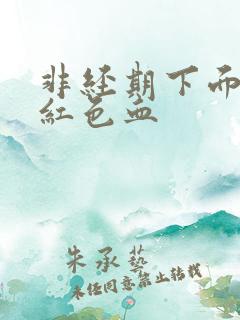 非経期下而
紅色血
朱承藝
未經同意禁止转載